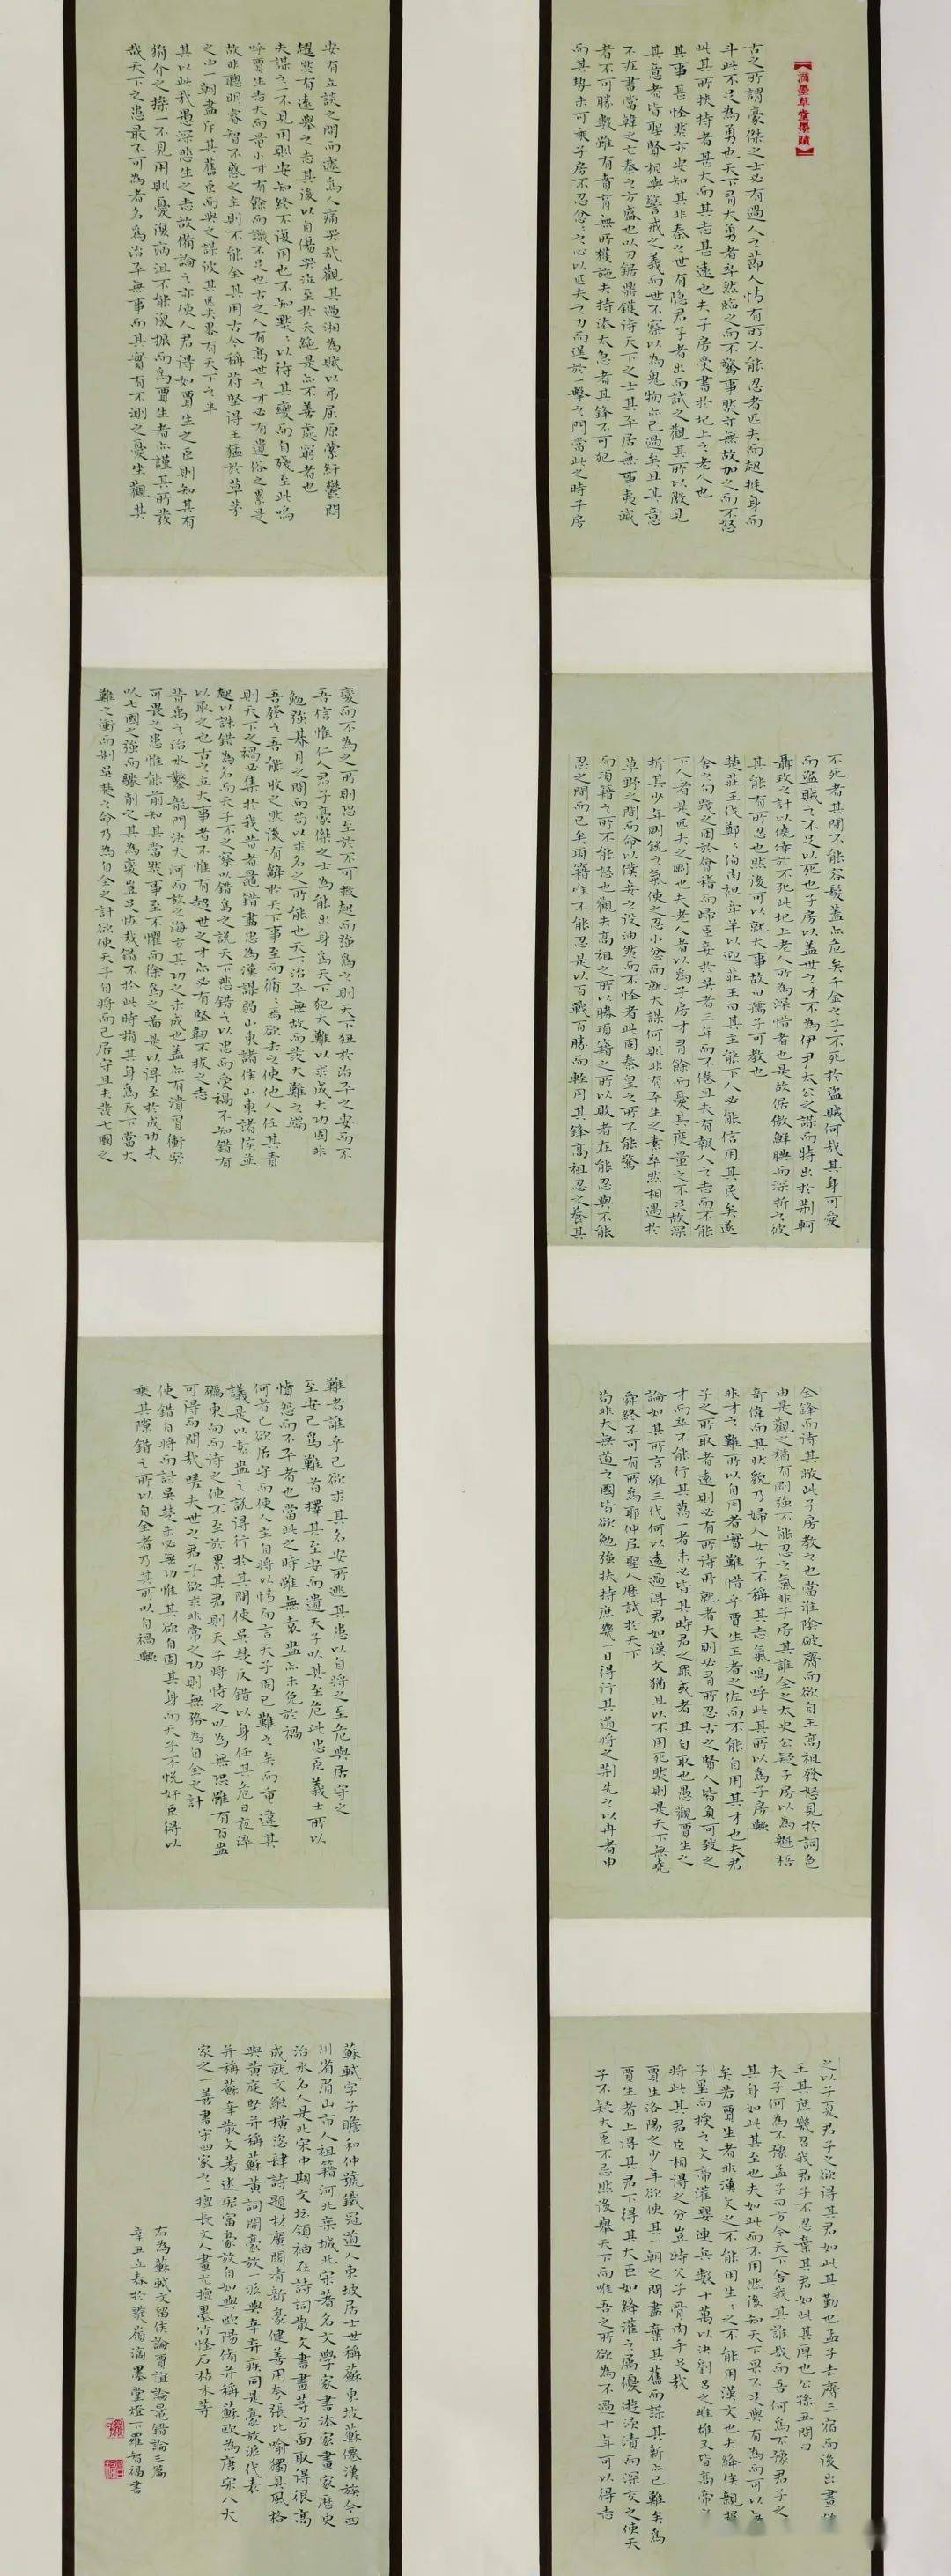 【滴墨草堂墨蹟】
古之所謂豪傑之士必有過人之節人情有所不能忍者匹夫而起挺身而
斗此不足為勇也天下有大勇者卒然臨之而不驚事然亦無故加之而不怒
此其所挾持者甚大而其志甚遠也夫子房受書於圯上之老人也
其事甚怪然亦安知其非秦之世有隐君子者出而試之觀其所以微見
其意者皆聖賢相與警戒之義而世不察以為鬼物亦已過矣且其意
不在書當韓之亡秦之方盛也以刀鋸鼎鑊待天下之士其平居無事夷滅
者不可勝數雖有賁育無所獲施夫持法太急者其鋒不可犯
而其勢未可乘子房不忍忿之心以匹夫之力而逞於一擊之間當此之時子房
不死者其間不能容髮蓋亦危矣千金之子不死於盜賊何哉其身可愛
而盜賊之不足以死也子房以蓋世之才不為伊尹太公之謀而特出於荆軻
聶政之計以僥倖於不死此圯上老人所為深惜者也是故倨傲鮮腆而深折之彼
其能有所忍也然後可以就大事故曰孺子可教也
楚莊王伐鄭鄭伯肉袒牽羊以迎莊王曰其主能下人必能信用其民矣遂
舍之句踐之困於會稽而歸臣妾於吳者三年而不倦且夫有報人之志而不能
下人者是匹夫之剛也夫老人者以為子房才有餘而憂其度量之不足故深
折其少年剛銳之氣使之忍小忿而就大謀何則非有平生之素卒然相遇於
草野之間而命以僕妾之役油然而不怪者此固秦皇之所不能驚
而項籍之所不能怒也觀夫高祖之所以勝項籍之所以敗者在能忍與不能
忍之間而已矣項籍惟不能忍是以百戰百勝而輕用其鋒高祖忍之養其
全鋒而待其敝此子房教之也當淮陰破齊而欲自王高祖發怒見於詞色
由是觀之猶有剛強不能忍之氣非子房其誰全之太史公疑子房以為魁梧
奇偉而其狀貌乃婦人女子不稱其志氣嗚呼此其所以為子房歟
非才之難所以自用者實難惜乎賈生王者之佐而不能自用其才也夫君
子之所取者遠則必有所待所就者大則必有所忍古之賢人皆負可致之
才而卒不能行其萬一者未必皆其時君之罪或者其自取也愚觀賈生之
論如其所言雖三代何以遠過得君如漢文猶且以不用死然則是天下無堯
舜終不可有所為耶仲尼聖人歷試於天下
苟非大無道之國皆欲勉強扶持庶幾一日得行其道將之荆先之以冉有申
之以子夏君子之欲得其君如此其勤也孟子去齊三宿而後出晝猶
王其庶幾召我君子不忍棄其君如此其厚也公孫丑問曰
夫子何為不豫孟子曰方今天下舍我其誰哉而吾何為不豫君子之
其身如此其至也夫如此而不用然後知天下果不足與有為而可以無
矣若賈生者非漢文之不能用生生之不能用漢文也夫絳侯親握
子璽而授之文帝灌嬰連兵數十萬以決劉呂之雌雄又皆高帝之
將此其君臣相得之分豈特父子骨肉手足哉
賈生洛陽之少年欲使其一朝之間盡棄其舊而謀其新亦已難矣為
賈生者上得其君下得其大臣如絳灌之屬優遊浸漬而深交之使天
子不疑大臣不忌然後舉天下而唯吾之所欲為不過十年可以得志
安有立談之間而遽為人痛哭哉觀其過湘為賦以吊屈原縈紆鬱悶
趯然有遠舉之志其後以自傷哭泣至於夭絕是亦不善處窮者也
夫謀之一不見用則安知終不復用也不知默默以待其變而自殘至此嗚
呼賈生志大而量小才有餘而識不足也古之人有高世之才必有遺俗之累是
故非聰明睿智不惑之主則不能全其用古今稱苻堅得王猛於草茅
之中一朝盡斥其舊臣而與之謀彼其匹夫略有天下之半
其以此哉愚深悲生之志故備論之亦使人君得如賈生之臣則知其有
狷介之操一不見用則憂傷病沮不能復振而為賈生者亦謹其所發
哉天下之患最不可為者名為治平無事而其實有不測之憂坐觀其
變而不為之所則恐至於不可救起而強為之則天下狃於治平之安而不
吾信惟仁人君子豪傑之士為能出身為天下犯大難以求成大功固非
勉強朞月之間而苟以求名之所能也天下治平無故而發大難之端
吾發之吾能收之然後有辭於天下事至而循循焉欲去之使他人任其責
則天下之禍必集於我昔者鼂錯盡忠為漢謀弱山東諸侯山東諸侯並
起以誅錯為名而天子不之察以錯為之說天下悲錯之以忠而受禍不知錯有
以取之也古之立大事者不惟有超世之才亦必有堅韌不拔之志
昔禹之治水鑿龍門決大河而放之海方其功之未成也蓋亦有潰冒衝突
可畏之患惟能前知其當然事至不懼而徐為之圖是以得至於成功夫
以七國之強而驟削之其為變豈足怪哉錯不於此時捐其身為天下當大
難之衝而制吳楚之命乃為自全之計欲使天子自將而己居守且夫發七國之
難者誰乎己欲求其名安所逃其患以自將之至危與居守之
至安己為難首擇其至安而遺天子以其至危此忠臣義士所以
憤怨而不平者也當此之時雖無袁盎亦未免於禍
何者己欲居守而使人主自將以情而言天子固已難之矣而重違其
議是以袁盎之說得行於其間使吳楚反錯以身任其危日夜淬
礪東向而待之使不至於累其君則天子將恃之以為無恐雖有百盎
可得而間哉嗟夫世之君子欲求非常之功則無務為自全之計
使錯自將而討吳楚未必無功惟其欲自固其身而天子不悅奸臣得以
乘其隙錯之所以自全者乃其所以自禍歟
蘇軾字子瞻和仲號鐵冠道人東坡居士世稱蘇東坡蘇僊漢族今四
川省眉山市人祖籍河北欒城北宋著名文學家書法家畫家歷史
治水名人是北宋中期文坛領袖在詩詞散文書畫等方面取得很高
成就文縱橫恣肆詩題材廣闊清新豪健善用夸張比喻獨具風格
與黄庭堅并稱蘇黄詞開豪放一派與辛弃疾同是豪放派代表
并稱蘇辛散文著述宏富豪放自如與歐陽脩并稱蘇歐為唐宋八大
家之一善書宋四家之一擅長文人畫尤擅墨竹怪石枯木等
右為蘇軾文留侯論賈誼論晁錯論三篇
辛丑立春於歡嶺滴墨堂燈下羅智福書